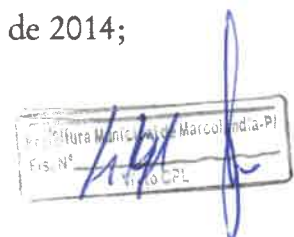 de 2014;
Prefeitura Municipal de Marcolândia-PI
Fls. Nº
Visto CPL